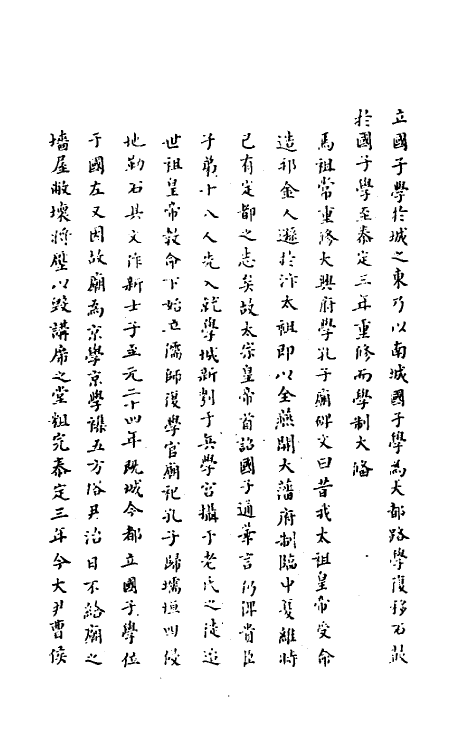 立國子學於城之東乃以南城國子學為大都路學復移石鼓
於國子學至泰定三年重修而學制大備
馬祖常重修大興府學孔子廟碑文曰昔我太祖皇帝受命
造邦金人遯於汴太祖即以全燕開大藩府制臨中夏維時
已有定都之志矣故太宗皇帝首詔國子通華言仍俾貴臣
子弟十八人先入就學城新刳于兵學宮攝于老氏之徒迨
世祖皇帝教命下始立儒師復學官廟祀孔子歸壖垣四侵
地勒石具文作新士子至元二十四年既城今都立國子學位
于國左又因故廟為京學京學雜五方俗尹治日不給廟之
墻屋敝壞將壓以毀講席之堂粗完泰定三年今大尹曹侯